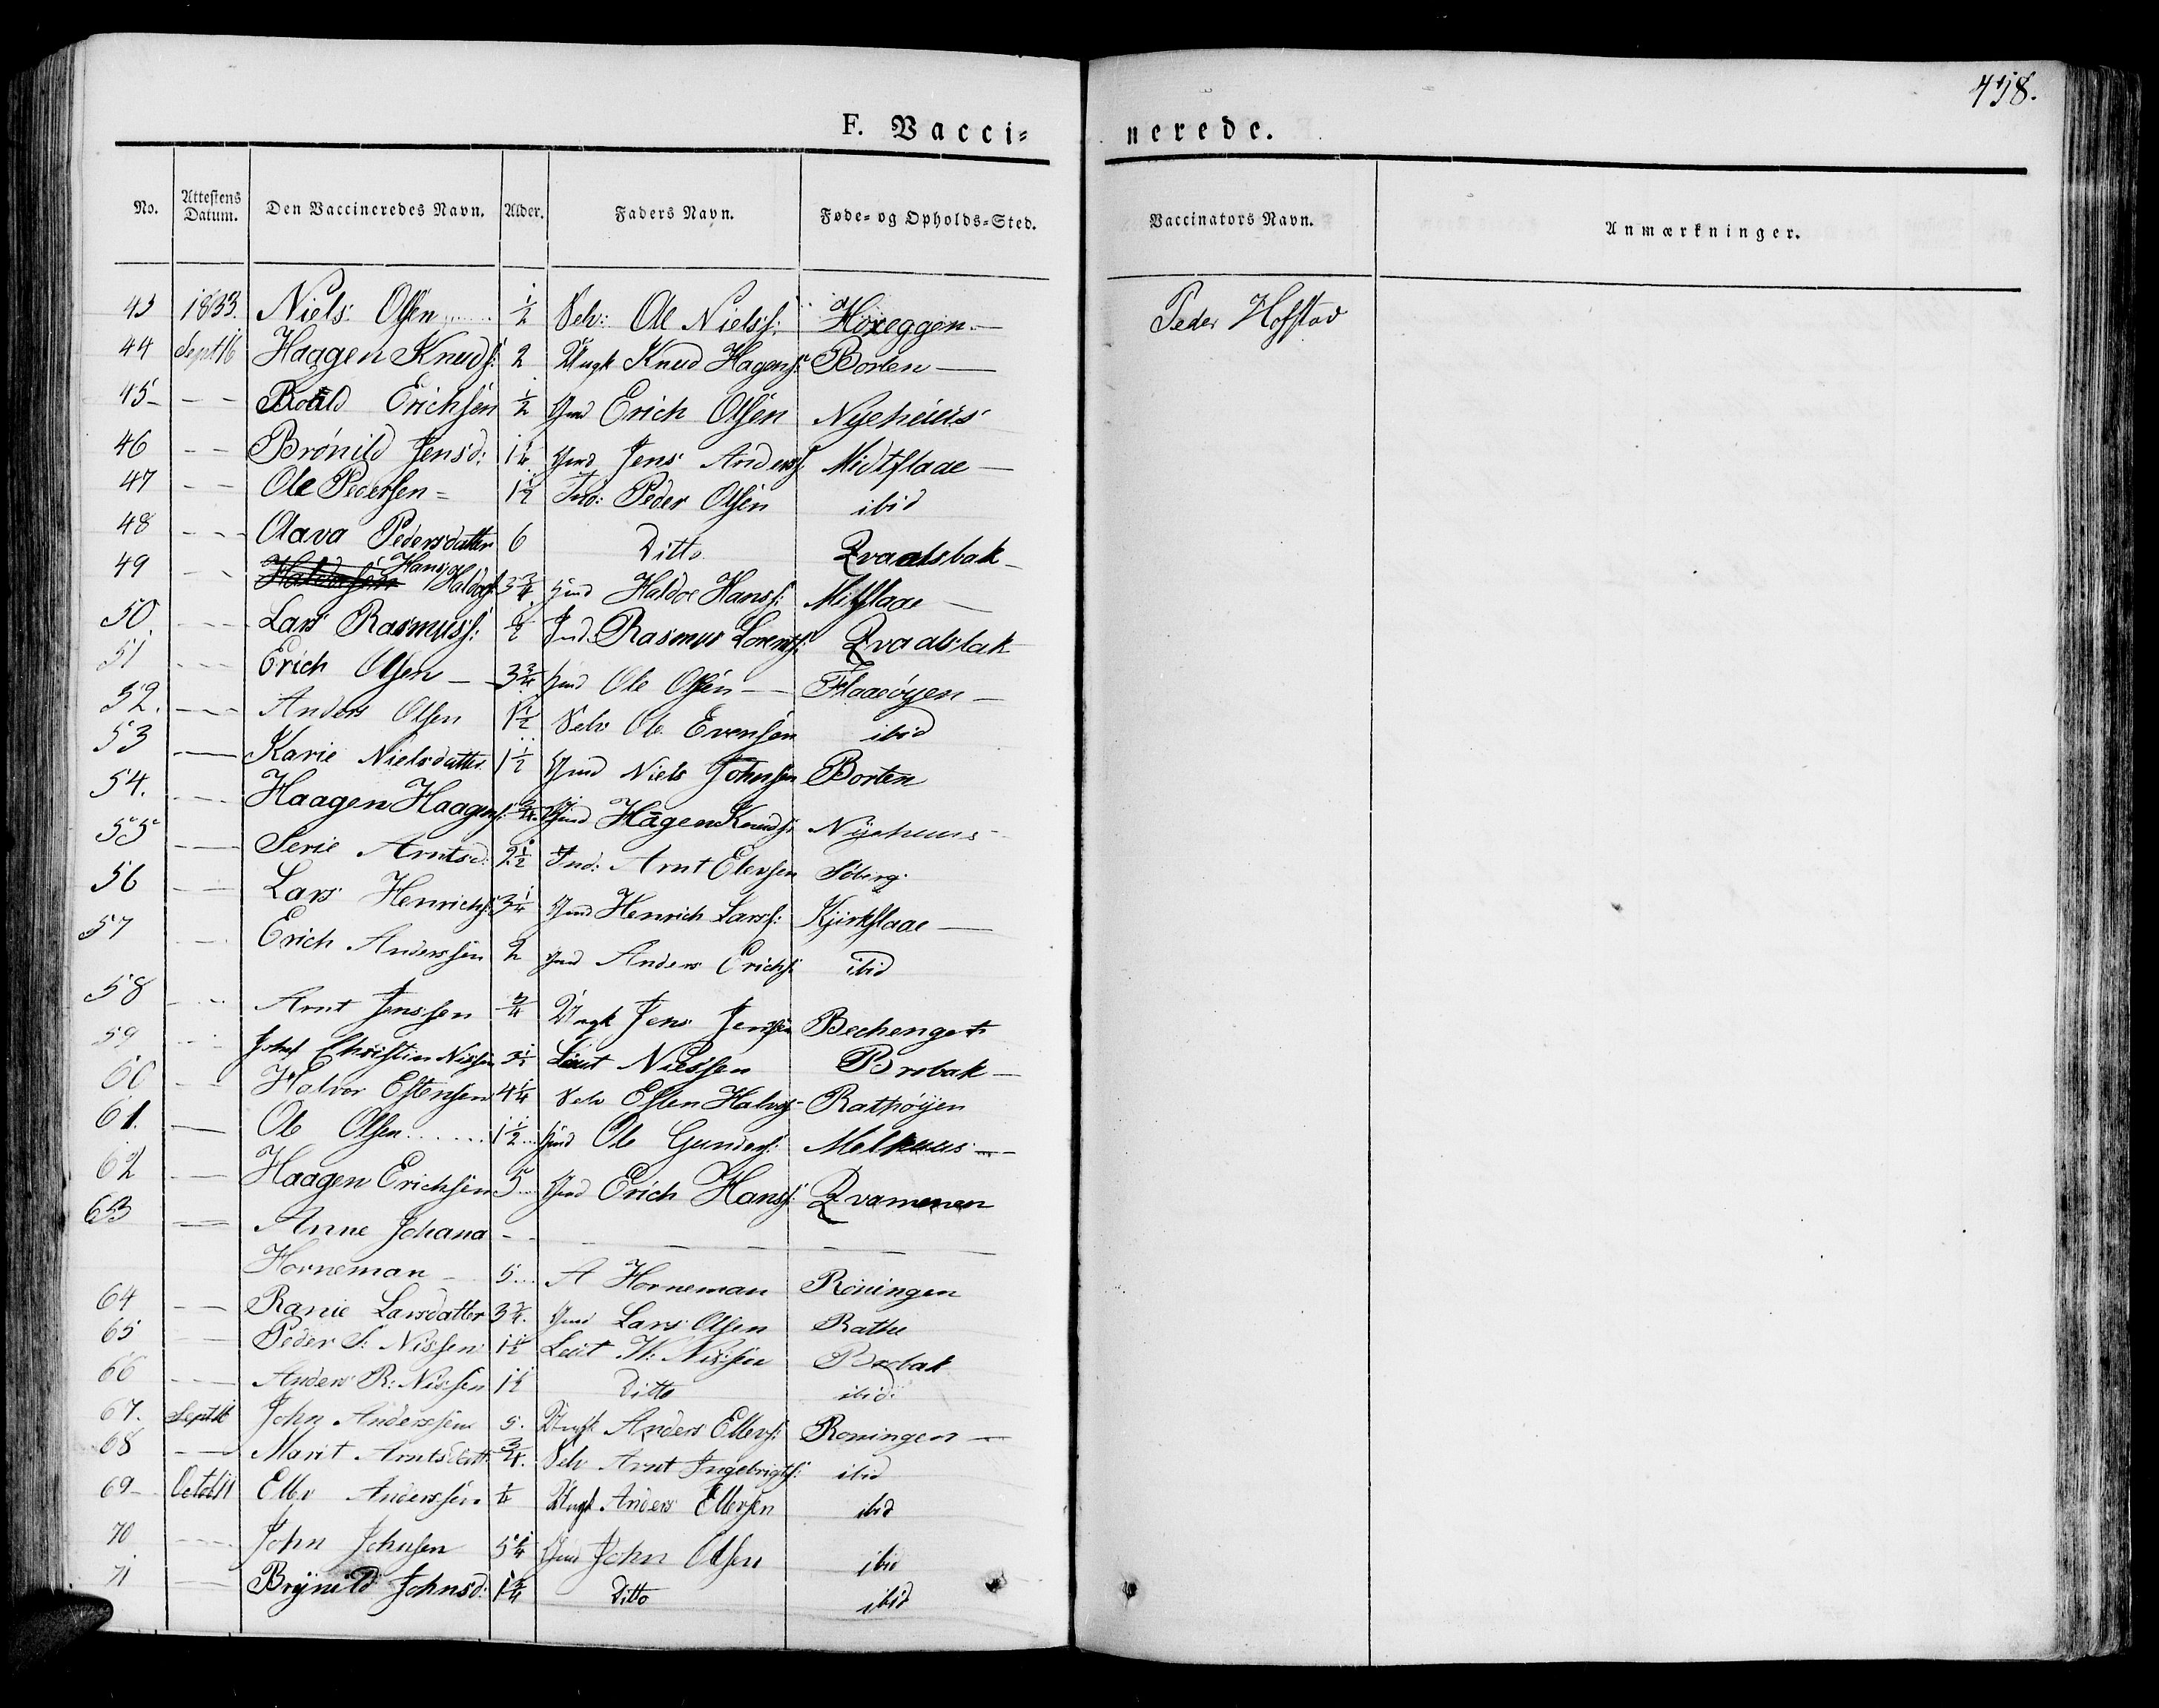 418.
F. Vacci=
nerede.
No. Attestens Datum. Den Vaccineredes Navn. Alder. Faders Navn. Føde= og Opholds=Sted. Vaccinators Navn. Anmærkninger.
43 1833. Niels Olsen ½ Selv: Ole Nielss: Hoxeggen — Peder Hofstad
44 Sept 16 Haagen Knuds: 2 Knud Hagens: Borten —
45 - - Erichsen ½ Gmd Erich Olsen Nyehuus
46 - - Brönild Jensd: 1¼ Gmd Jens Anderss: Midtflaae —
47 - - Ole Pedersen = 1½ Ind: Peder Olsen ibid
48 - - - Olava Pedersdatter 6 Ditto Qvaalsbak
49 - - Hans Haldors: 3¾ Hmd Haldor Hanss: Mitflaae —
50 - - - Lars Rasmuss: ½ Ind: Rasmus Lorents: Qvaalsbak
51 - - - Erich Olsen — 3¾ Hmd Ole Olsen — Flaaeöyen —
52. - - - Anders Olsen 1½ Selv Ole Evensen ibid
53 — Karie Nielsdatter 1½ Gmd Niels Johnsen Borten
54. - - - Haagen Haagens: ¾ Gmd Hagen Knuds: Nyehuus
55 — Serie Arntsd: 2½ Ind: Arnt Elevsen Söberg
56 - - Lars Henrichs: 3¼ Gmd Henrich Larss: Kjirkflaae —
57 - - Erich Anderssen 2 Gmd Anders Erichs: ibid
58 - - - Arnt Jenssen ¾ Jens Jenssen Bechenget
59 - - Christian Nissen Leut Niessen Brobak —
60 - - Halvor Estensen 4¼ Selv Esten Halvors: Rathöyen
61. — Ole Olsen 1½ Hmd Ole Gunders: Melhuus —
62 - - Haagen Erichsen 5 Gmd Erich Hanss: Qvammen
63 — Anne Johana - -
Horneman 5 A Horneman Röningen
64 - - Ranie Larsdatter 3¾ Gmd Lars Olsen Rathe
65 - - Peder S: Nissen 1½ Leut H: Nissen Brobak
66 - - Anders R: Nissen 1½ Ditto ibid:
67. Sept 16 John Anderssen 5. Anders Ellevs: Roningen —
68 - - Marit Arntsdatt: ¾ Selv Arnt Ingebrigts: ibid
69 - Octob 11 Ellev Anderssen ¼ Anders Ellevsen ibid
70 - - - John Johnsen 5¼ Gmd John Olsen ibid
71 — Brynild Johnsd: 1¾ Ditto ibid